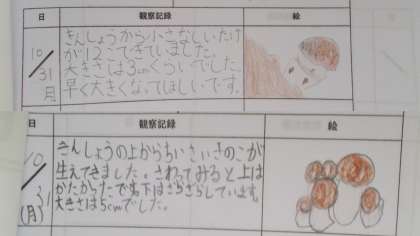 日 観察記録 絵
10/31 月
きんしょうから小さなしいたけ
が1つでてきていました。
大きさは3cmくらいでした。
早く大きくなってほしいです。
日 観察記録 絵
10/31 (月)
きんしょうの上からちいさいきのこが
生えてきました。さわってみると上は
かたかったで下はさらさらしています。
大きさは5cmでした。